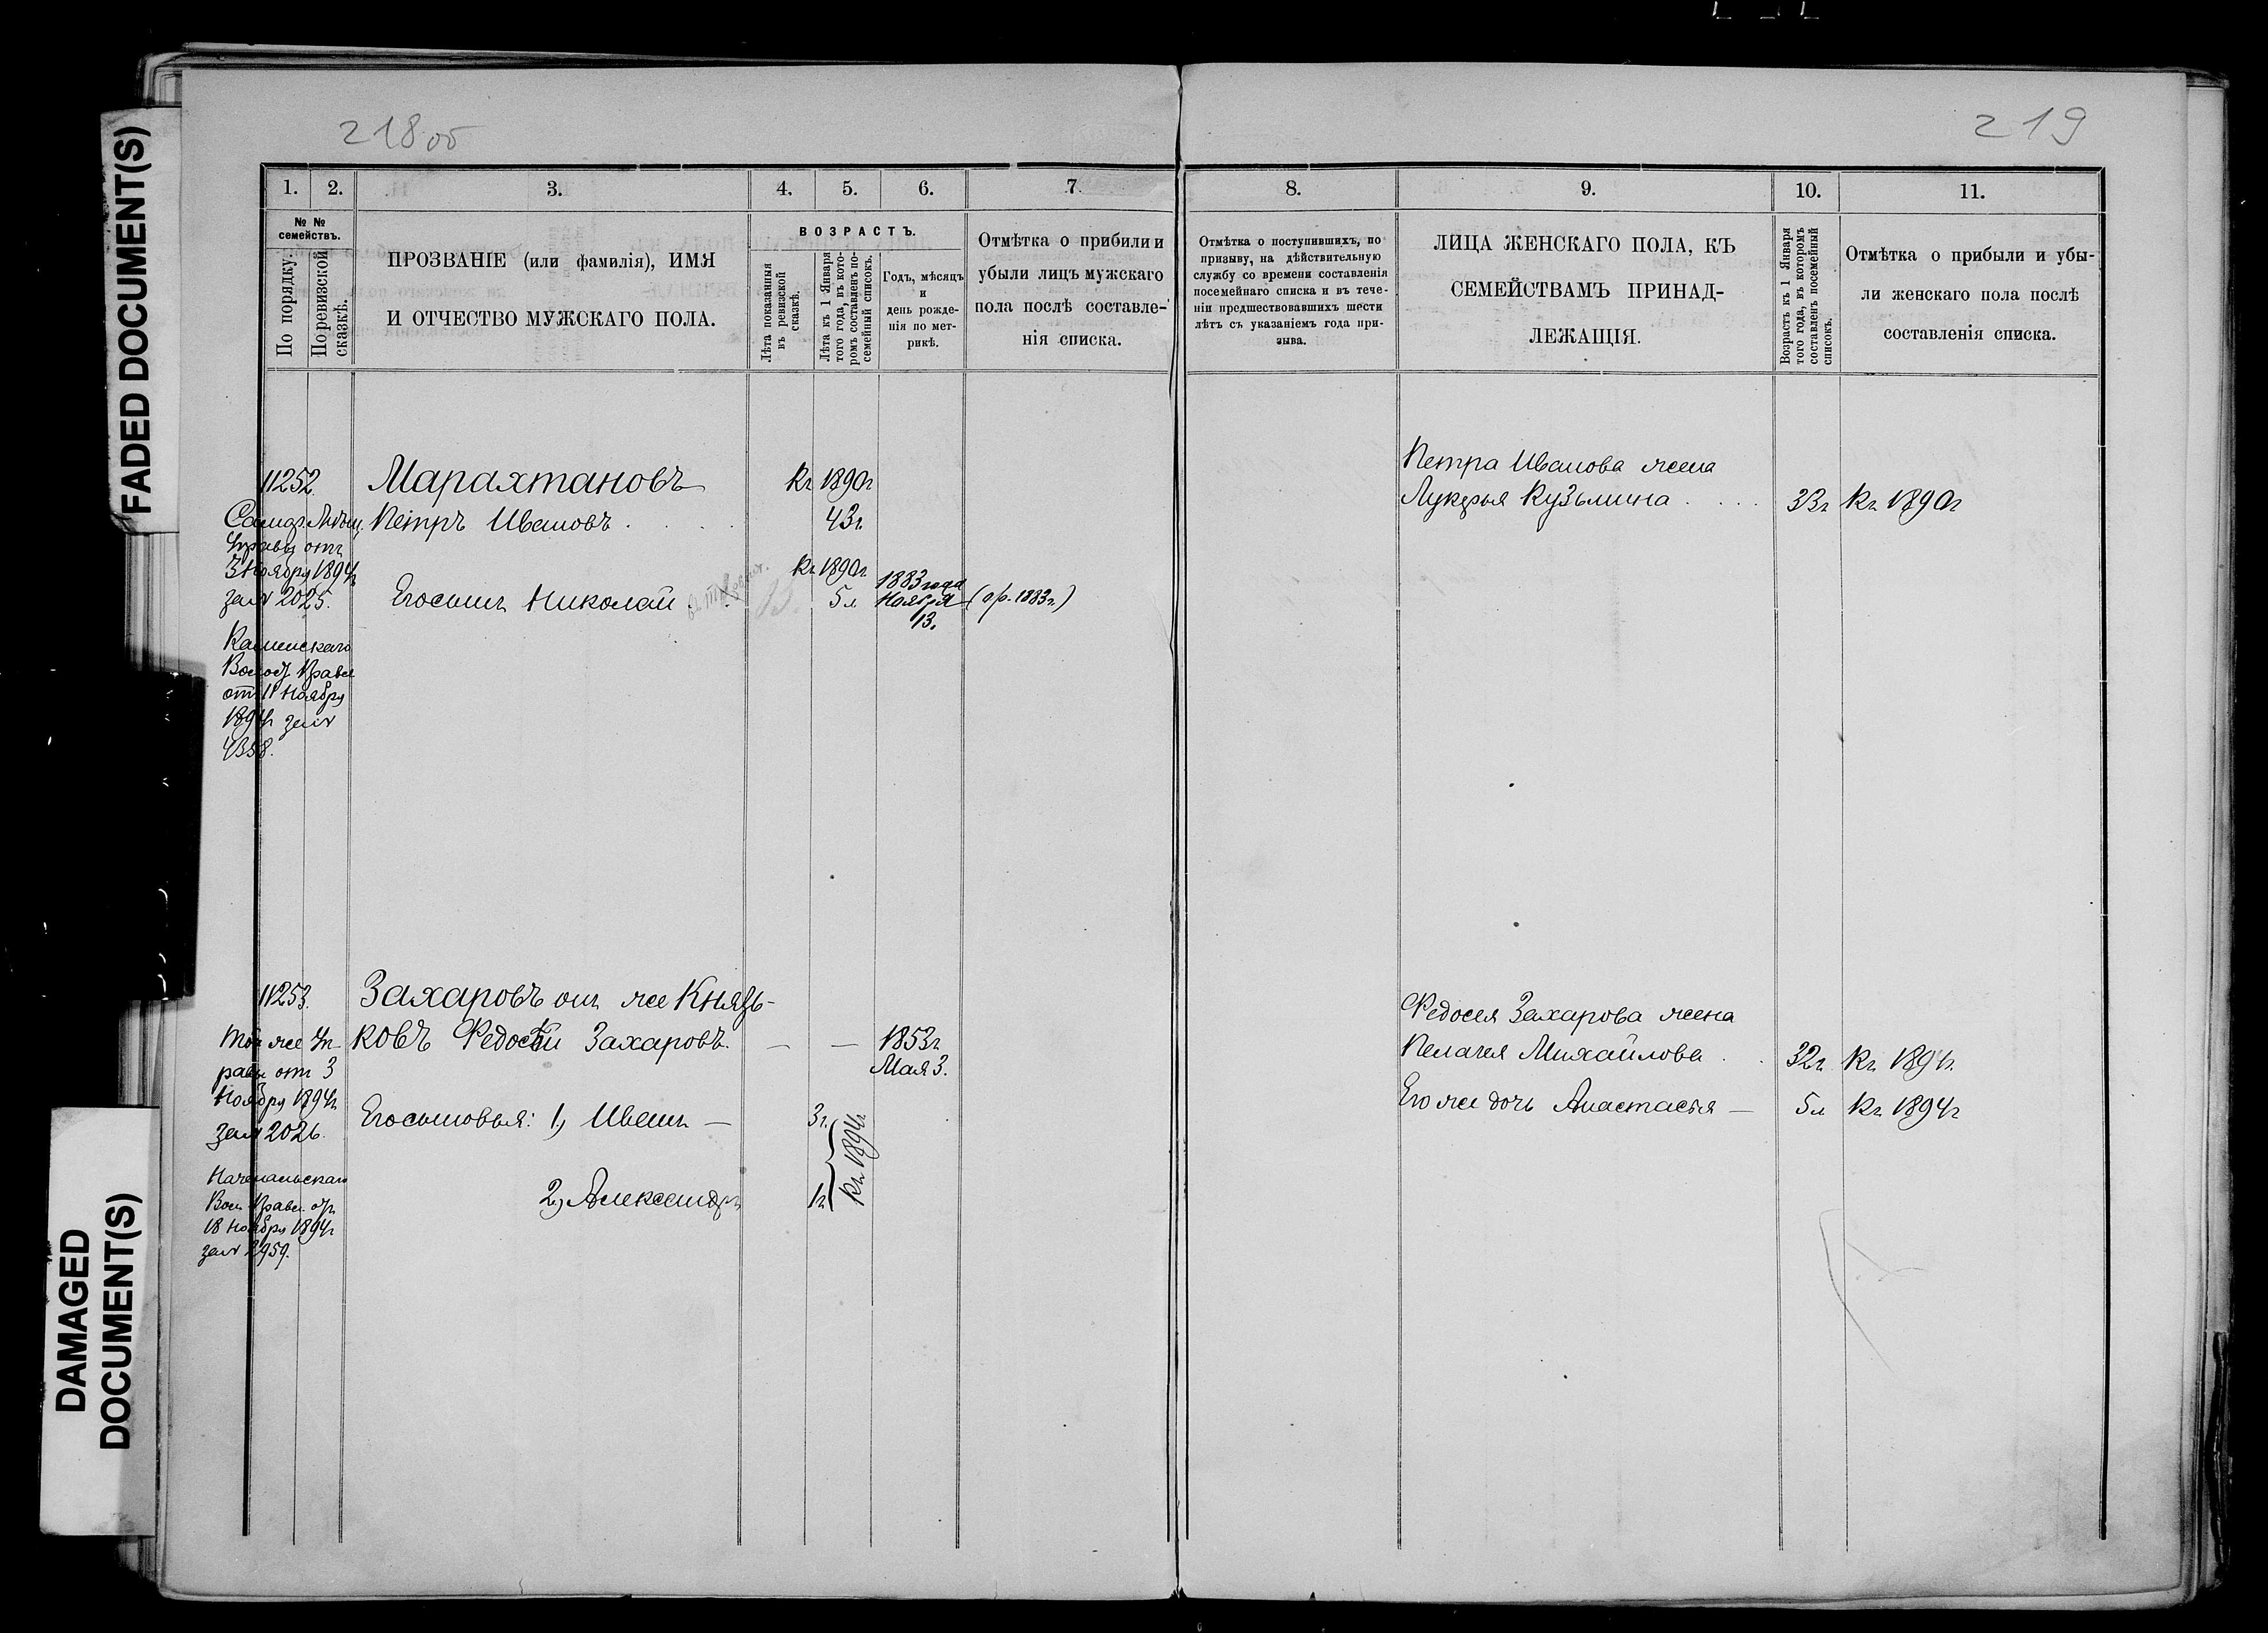 FADED DOCUMENT(S)
DAMAGED
DOCUMENT(S)
218 об
1. 2. 3. 4. 5. 6. 7.
№ №
семействъ.
По порядку.
По ревизской
сказкѣ.
ПРОЗВАНІЕ (или фамилія), ИМЯ
И ОТЧЕСТВО МУЖСКАГО ПОЛА.
ВОЗРАСТЪ.
Лѣта показанныя
въ ревизской
сказкѣ.
Лѣта къ 1 Января
того года, въ кото-
ромъ составленъ по-
семейный списокъ.
Годъ, мѣсяцъ
и
день рожде-
нія по мет-
рикѣ.
Отмѣтка о прибыли и
убыли лицъ мужскаго
пола послѣ составле-
нія списка.
11252.
Самар. Мѣщ.
Управы отъ
3 Ноября 1894 г.
за № 2025.
Каменскаго
Волост. Правл
отъ 11 Ноября
1894 г за №
4358.
Марахтановъ
Петръ Ивановъ . . .
Къ 1890 г
43 г.
Его сынъ Николай . .
13.
Къ 1890 г
5 л
1883 года
Ноября
13.
(ор. 1883 г.)
11253.
Той же Уп-
равы отъ 3
Ноября 1894 г.
за № 2026.
Вол. Правл. отъ
18 Ноября 1894 г
за № 2959.
Захаровъ онъ же Князь-
ковъ Федосѣй Захаровъ. — —
1853 г
Мая 3.
Его сыновья: 1, Иванъ — 3 г.
2, Александръ 1 г.
Къ 1894 г.
219
8. 9. 10. 11.
Отмѣтка о поступившихъ, по
призыву, на дѣйствительную
службу со времени составленія
посемейнаго списка и въ тече-
ніи предшествовавшихъ шести
лѣтъ съ указаніемъ года при-
зыва.
ЛИЦА ЖЕНСКАГО ПОЛА, КЪ
СЕМЕЙСТВАМЪ ПРИНАД-
ЛЕЖАЩІЯ.
Возрастъ къ 1 Января
того года, въ которомъ
составленъ посемейный
списокъ.
Отмѣтка о прибыли и убы-
ли женскаго пола послѣ
составленія списка.
Петра Иванова жена
Лукерья Кузьмина . . . . 33 г Къ 1890 г
Федосея Захарова жена
Пелагея Михайлова . . 32 г Къ 1894 г.
Его же дочь Анастасья — 5 л Къ 1894 г